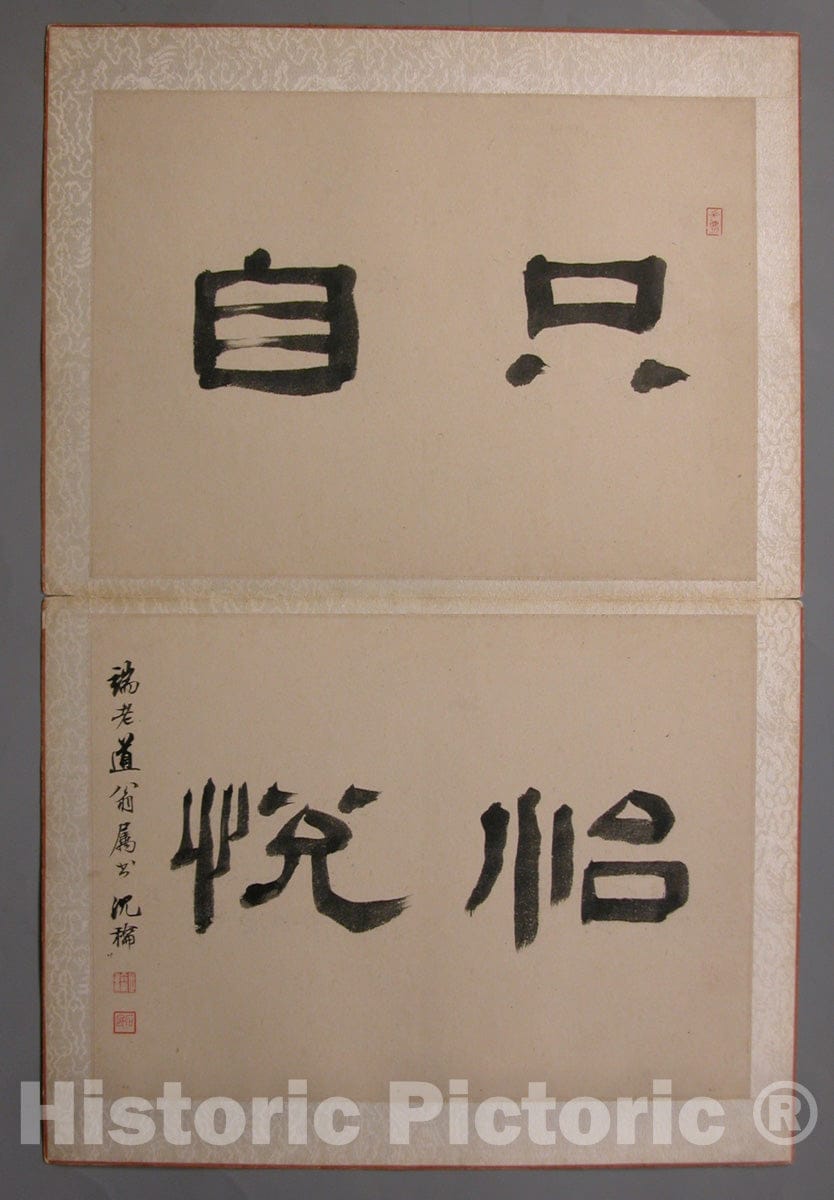 只自
怡悅
瑞老道翁屬書 沈
Historic Pictoric ®